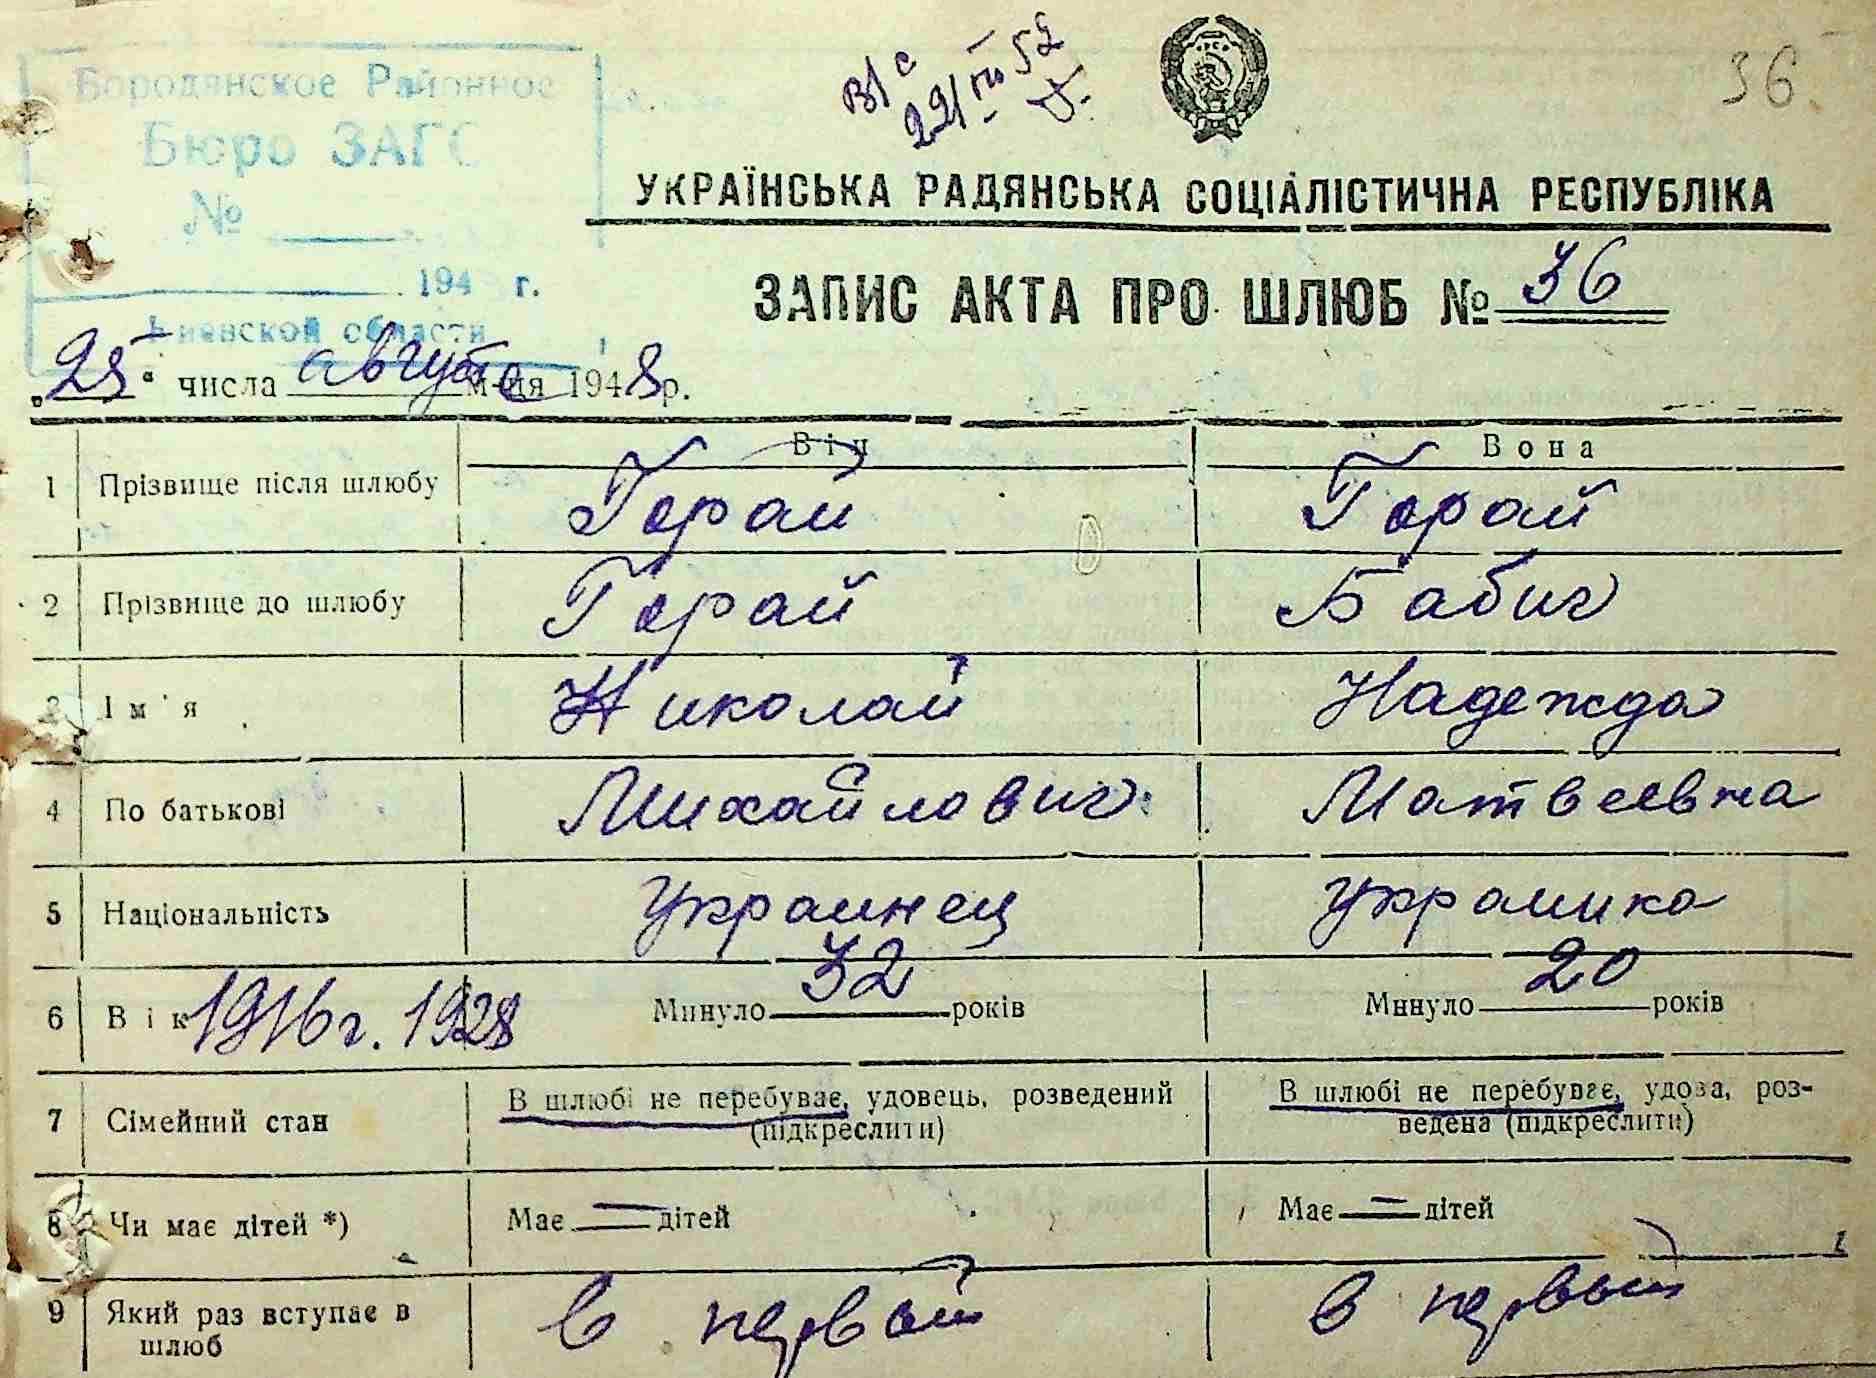 Бородянское Районное
Бюро ЗАГС
№
194 г.
Киевской области
в/с
22/III 52
36
УКРАЇНСЬКА РАДЯНСЬКА СОЦІАЛІСТИЧНА РЕСПУБЛІКА
ЗАПИС АКТА ПРО ШЛЮБ № 36
„25“ числа августа м-ця 1948 р.
Він Вона
1 Прізвище після шлюбу Горай Горай
2 Прізвище до шлюбу Горай Бабич
3 Ім'я Николай Надежда
4 По батькові Михайлович Матвеевна
5 Національність Украинец Украинка
6 Вік 1916 г. 1928 Минуло 32 років Минуло 20 років
7 Сімейний стан В шлюбі не перебуває, удовець, розведений (підкреслити) В шлюбі не перебуває, удова, роз-
ведена (підкреслити)
8 Чи має дітей *) Має — дітей Має — дітей
9 Який раз вступає в шлюб в первый в первый